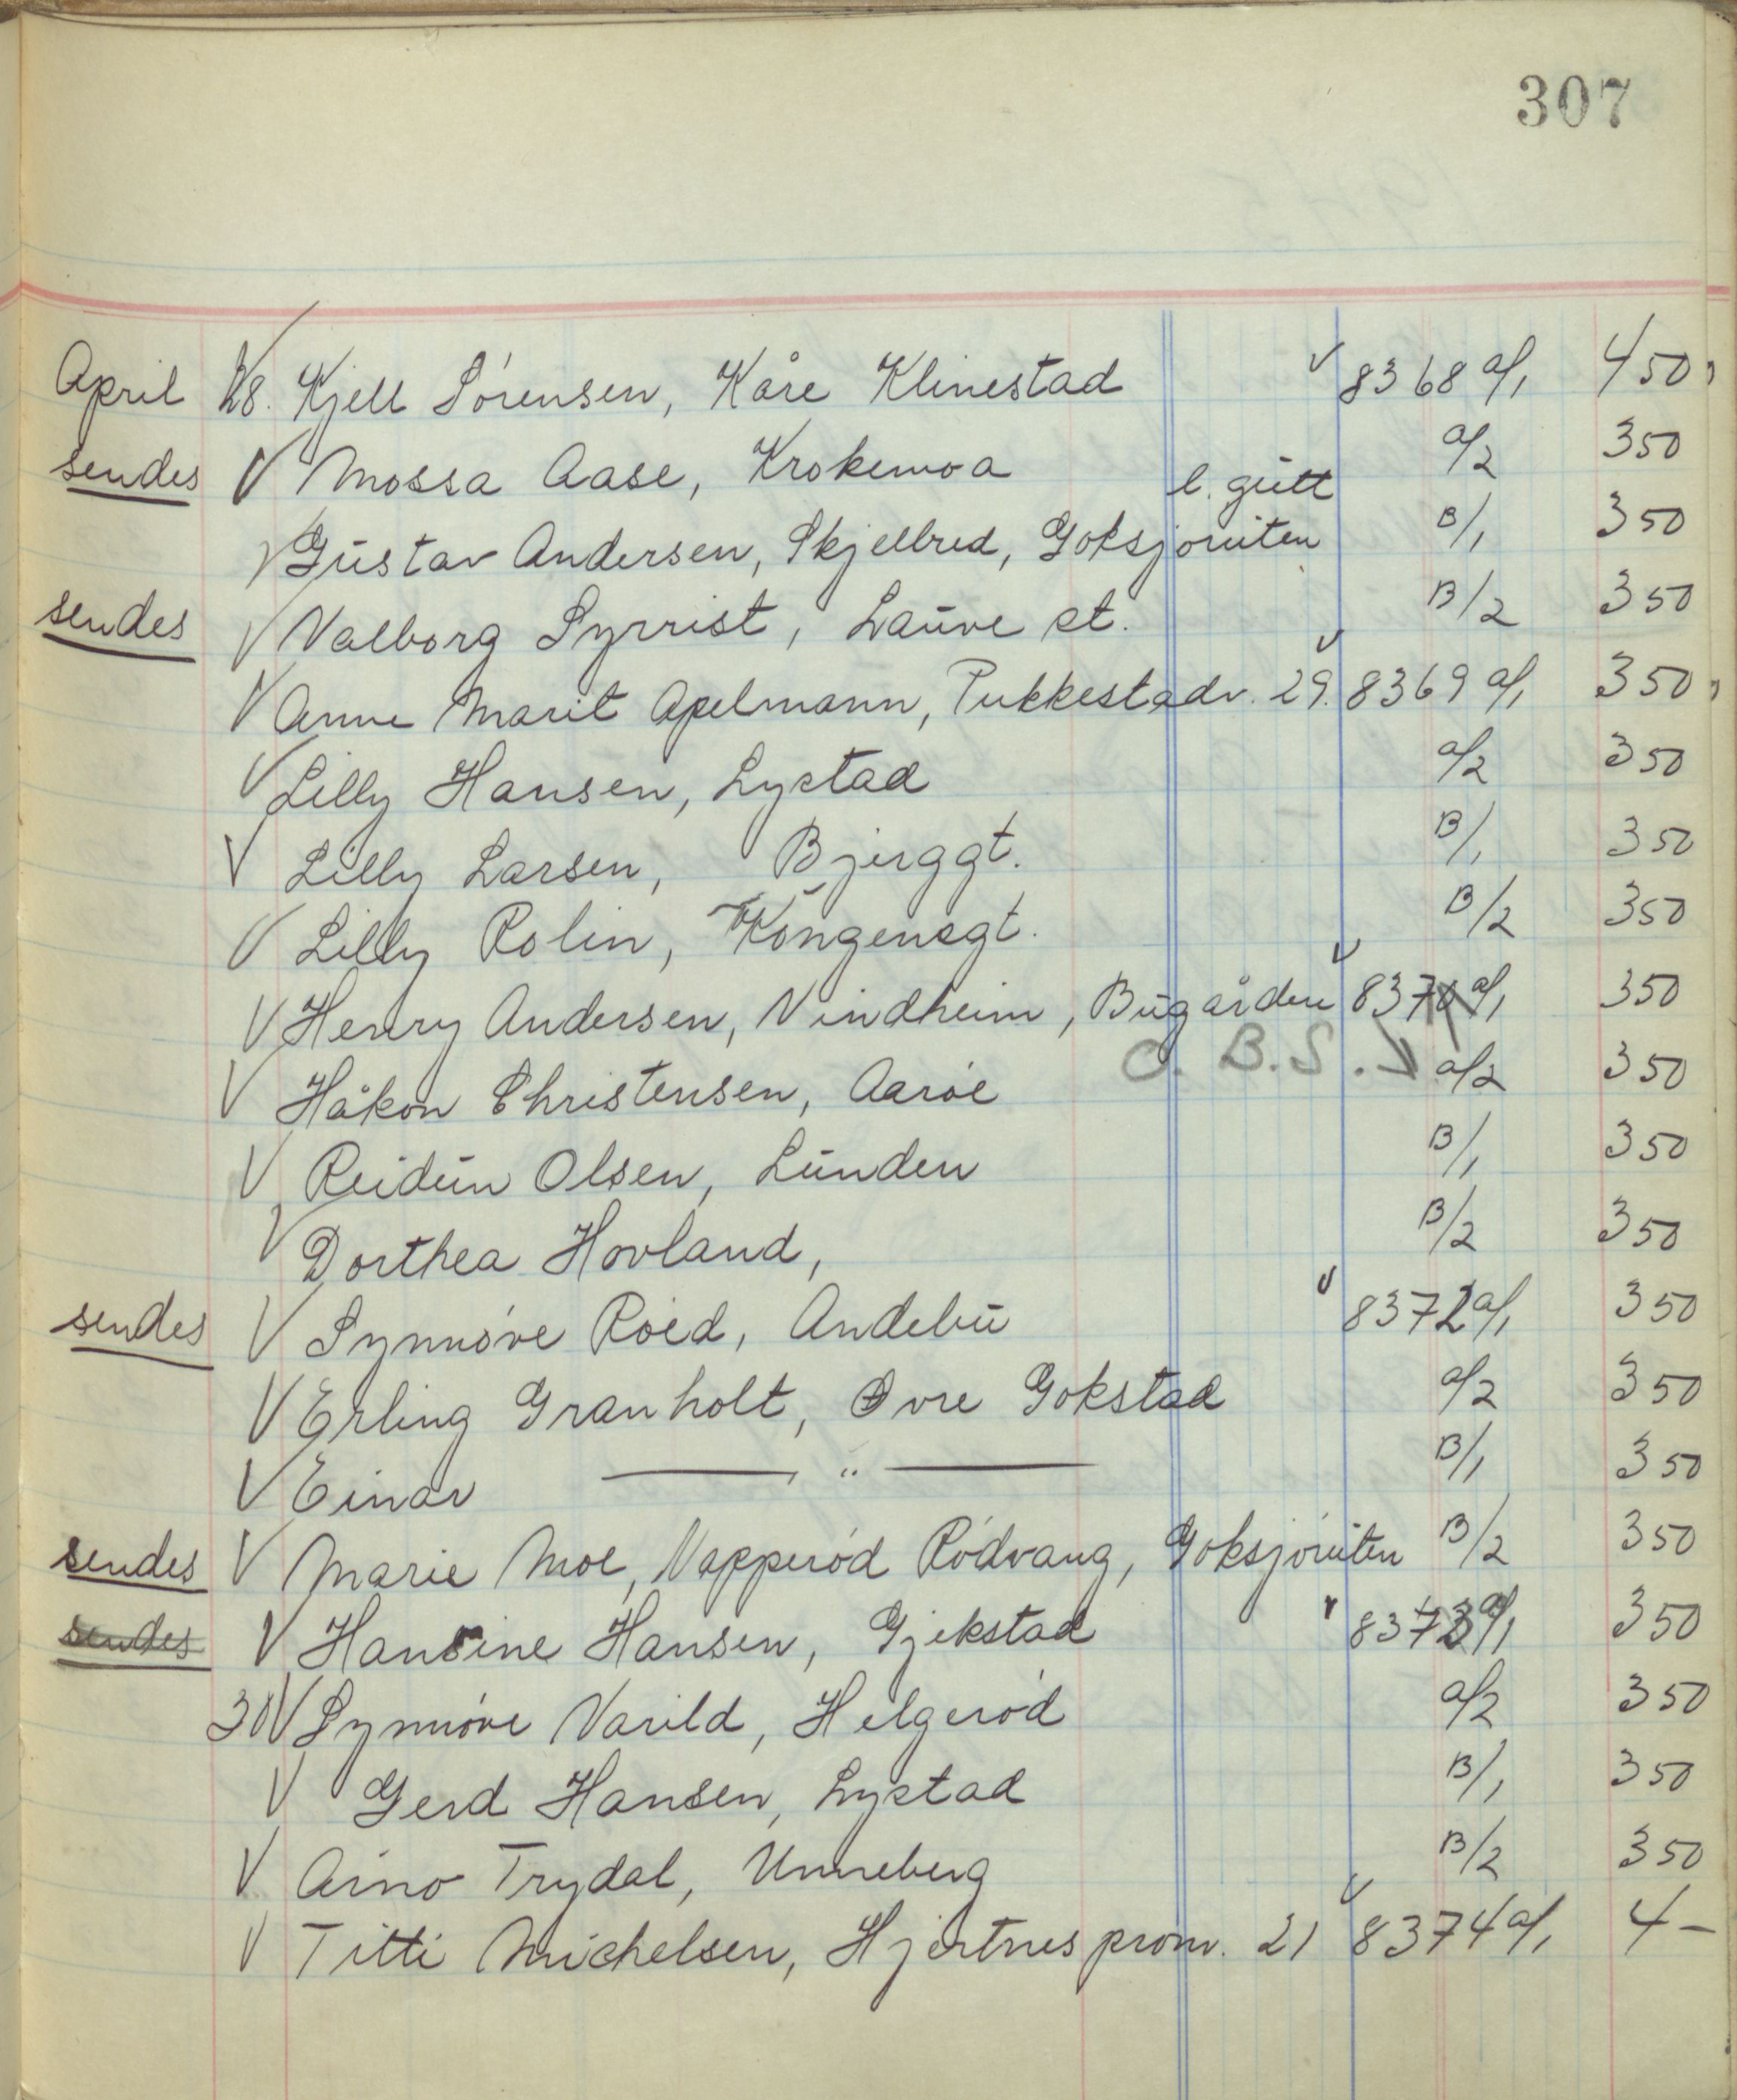 307
April 28. Kjell Sörensen, Kåre Klinestad 8368 a/1 450
sendes V Mossa Aase, Krokemoa a/2 350
l. gutt
V Gustav Andersen, Skjelbred, Goksjøruten B/1 350
sendes V Valborg Syrrist, Lauve st. B/2 350
V Anne Marit Apelmann, Pukkestadv. 29. 8369 a/1 350
V Lilly Hansen, Lystad a/2 350
V Lilly Larsen, Bjerggt. B/1 350
V Lilly Rolin, Kongensgt. B/2 350
V Henry Andersen, Vindheim, Bugården 8370 a/1 350
O. B. S.
V Håkon Christensen, Aaröe a/2 350
V Reidun Olsen, Lunden B/1 350
V Dorthea Hovland, B/2 350
sendes V Synnöve Röed, Andebu 8372 a/1 350
V Erling Granholt, Øvre Gokstad a/2 350
V Einar — " — B/1 350
sendes V Marie Moe, Napperöd Rödvang, Goksjöruten B/2 350
sendes V Hansine Hansen, Gjekstad 8373 a/1 350
30 V Synnöve Varild, Helgeröd a/2 350
V Gerd Hansen, Lystad B/1 350
V Aino Trydal, Unneberg B/2 350
V Titti Michelsen, Hjertnes prom. 21 8374 a/1 4 –